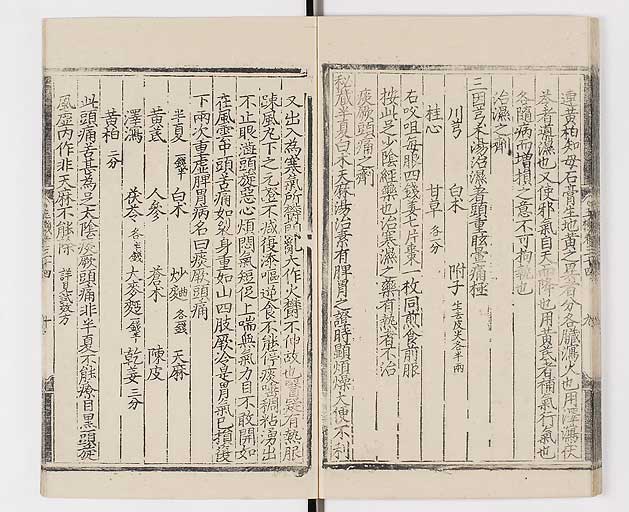 連黃柏知母石膏生地黃之類者分各臟瀉火也用澤瀉茯
苓者導濕也又使邪氣自天而降也用黃芪者補氣行氣也
各隨病而增損之意不可拘執也
治濕之劑
三因芎朮湯治濕着頭重眩暈痛極
川芎 白朮 附子 生去皮尖各半兩
桂心 甘草 各一分
右㕮咀每服四錢姜七片棗一枚同煎食前服
按此足少陰經藥也治寒濕之藥有熱者不治
痰厥頭痛之劑
秘藏半夏白朮天麻湯治素有脾胃之證時顯煩燥大便不利
又出入為寒氣所鬱悶亂大作火鬱不伸故也醫疑有熱服
踈風丸下之元證不減復添嘔逆食不能停痰唾稠粘湧出
不止眼澁頭旋惡心煩悶氣短促上喘無氣力目不敢開如
在風雲中頭苦痛如裂身重如山四肢厥冷是胃氣已損復
下兩次重虛脾胃病名曰痰厥頭痛
半夏 一錢半 白朮 炒麯 各一錢 天麻
黃芪 人參 蒼朮 陳皮
澤瀉 茯苓 各五錢 大麥麪 一錢半 乾姜 三分
黃柏 二分
此頭痛苦甚為足太陰痰厥頭痛非半夏不能療目黑頭旋
風虛內作非天麻不能除 詳見試效方